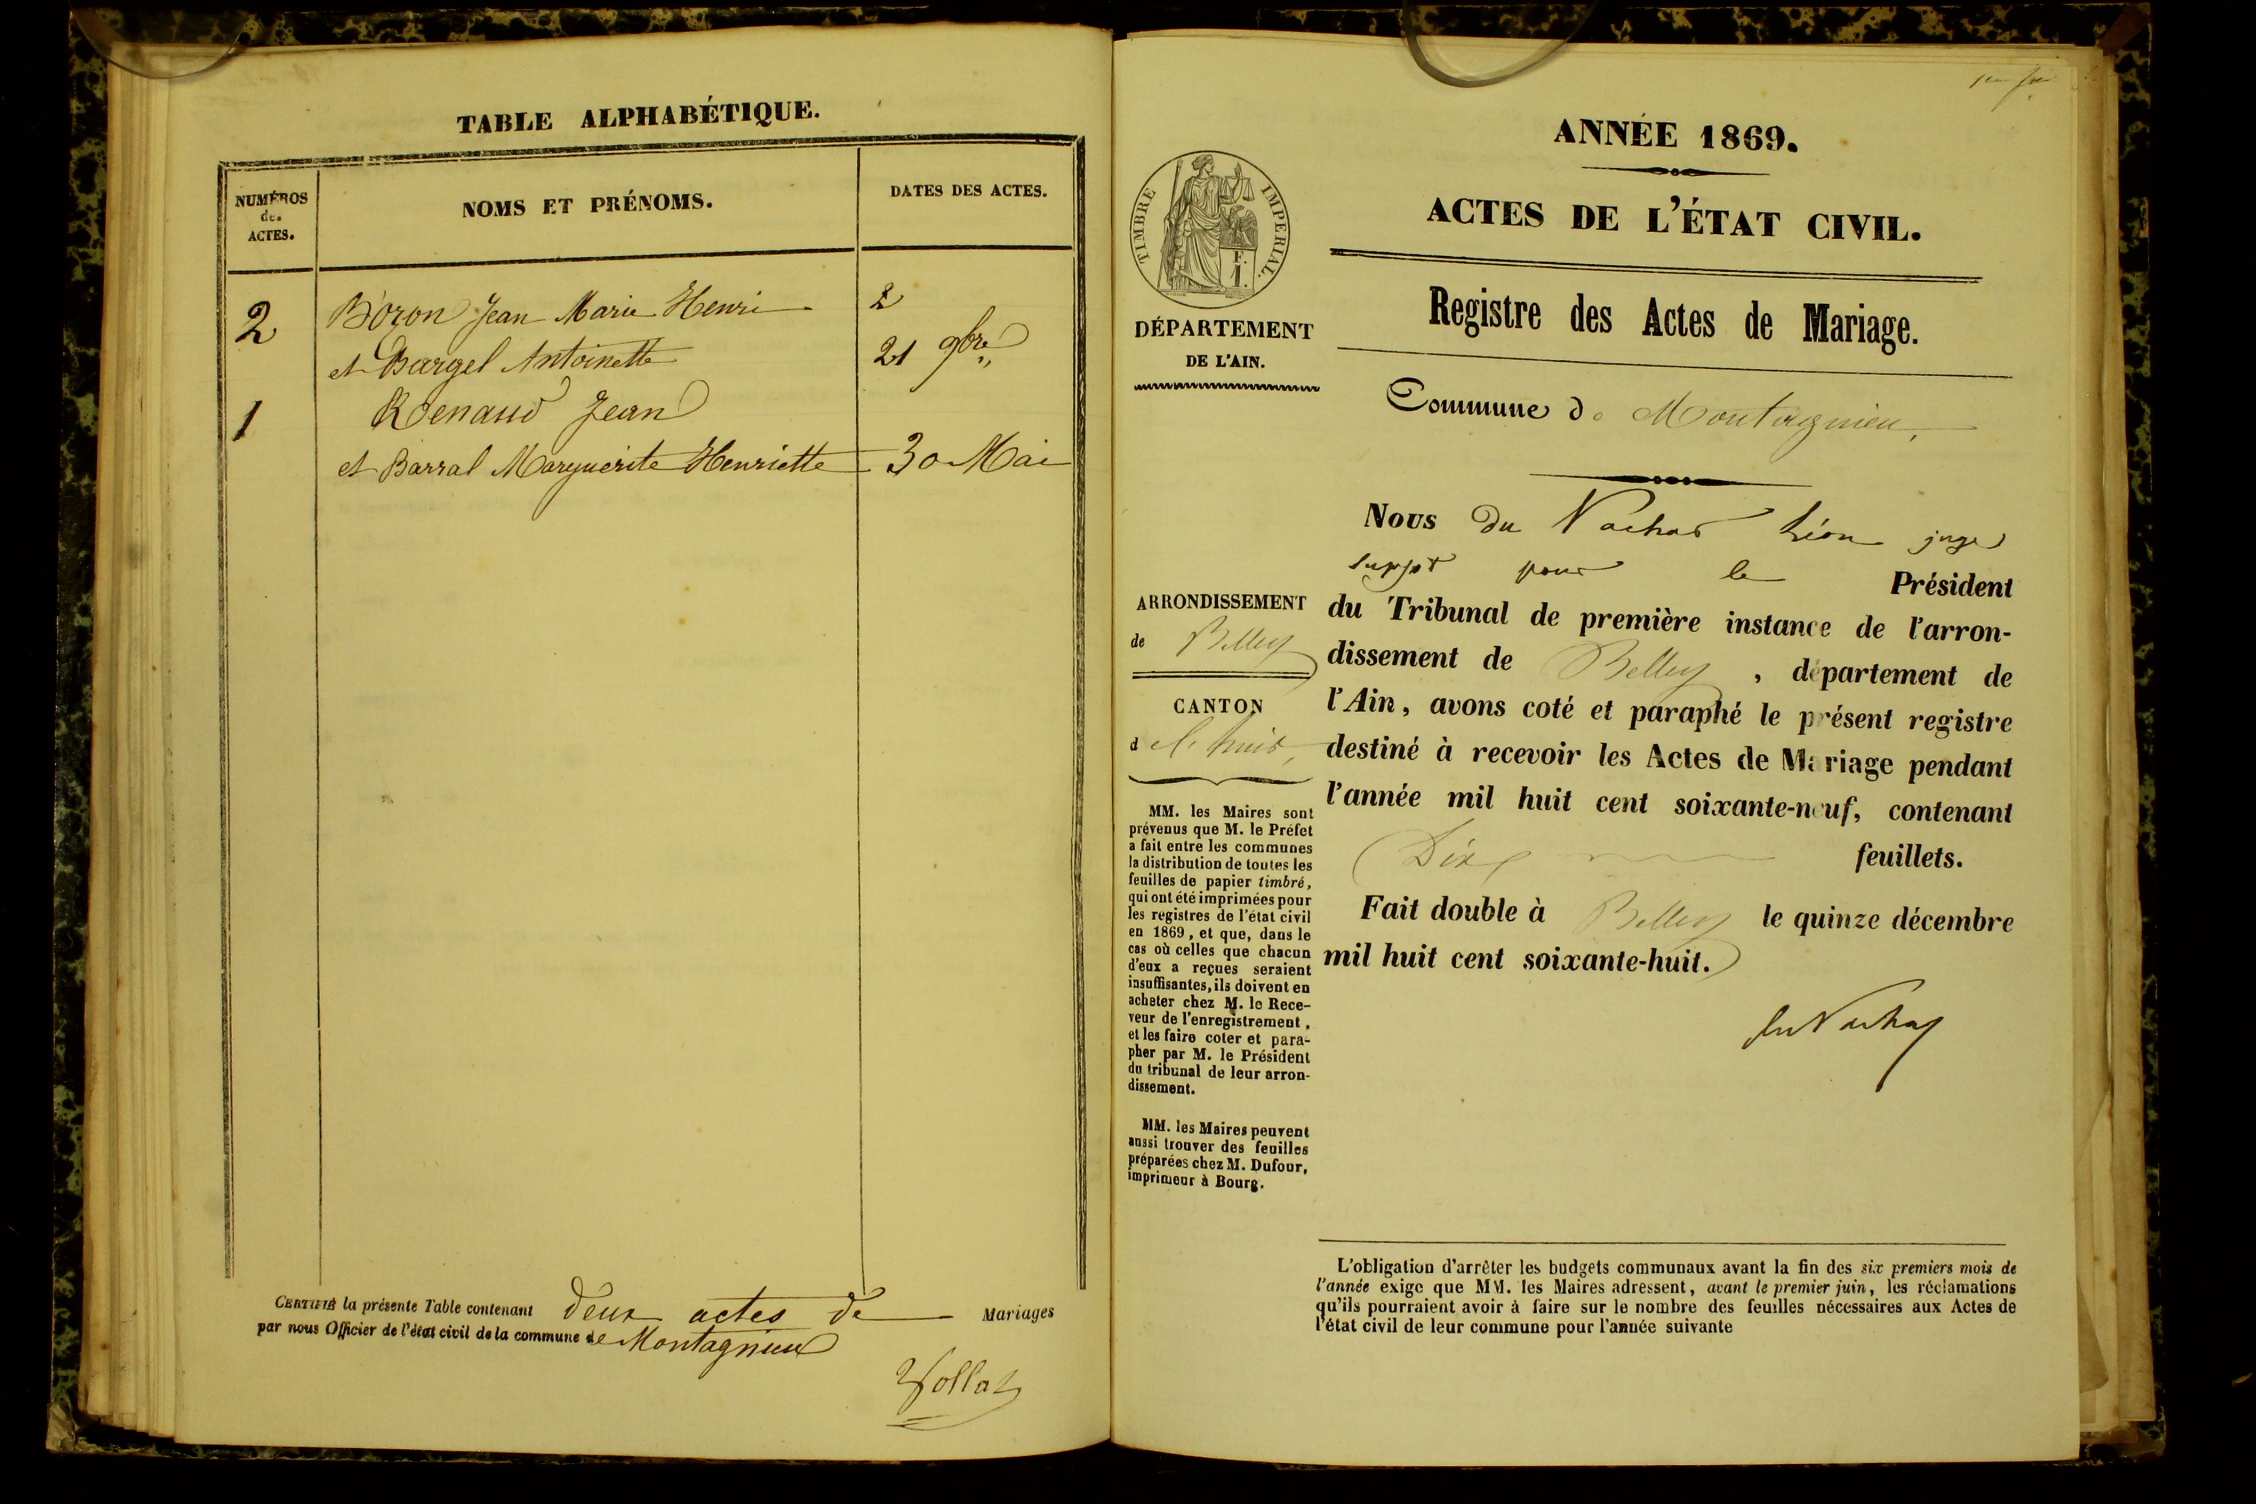 TABLE ALPHABÉTIQUE.
NUMÉROS
des
ACTES.
NOMS ET PRÉNOMS.
DATES DES ACTES.
2
Bozon Jean Marie Henri
2
et Bargel Antoinette
21 9bre
1
Renaud Jean
et Barral Marguerite Henriette
30 Mai
CERTIFIÉ la présente Table contenant deux actes de Mariages
par nous Officier de l'état civil de la commune de Montagnieu
ANNÉE 1869.
ACTES DE L'ÉTAT CIVIL.
TIMBRE IMPERIAL.
F.
1.
DÉPARTEMENT
DE L'AIN.
Registre des Actes de Mariage.
Commune de Montagnieu,
ARRONDISSEMENT
de Belley
CANTON
d
MM. les Maires sont
prévenus que M. le Préfet
a fait entre les communes
la distribution de toutes les
feuilles de papier timbré,
qui ont été imprimées pour
les registres de l'état civil
en 1869, et que, dans le
cas où celles que chacun
d'eux a reçues seraient
insuffisantes, ils doivent en
acheter chez M. le Rece-
veur de l'enregistrement,
et les faire coter et para-
pher par M. le Président
du tribunal de leur arron-
dissement.
MM. les Maires peuvent
aussi trouver des feuilles
préparées chez M. Dufour,
imprimeur à Bourg.
Nous du Nachat Léon juge
suppt pour le Président
du Tribunal de première instance de l'arron-
dissement de Belley, département de
l'Ain, avons coté et paraphé le présent registre
destiné à recevoir les Actes de Mariage pendant
l'année mil huit cent soixante-neuf, contenant
Dix feuillets.
Fait double à Belley le quinze décembre
mil huit cent soixante-huit.
L'obligation d'arrêter les budgets communaux avant la fin des six premiers mois de
l'année exige que MM. les Maires adressent, avant le premier juin, les réclamations
qu'ils pourraient avoir à faire sur le nombre des feuilles nécessaires aux Actes de
l'état civil de leur commune pour l'année suivante